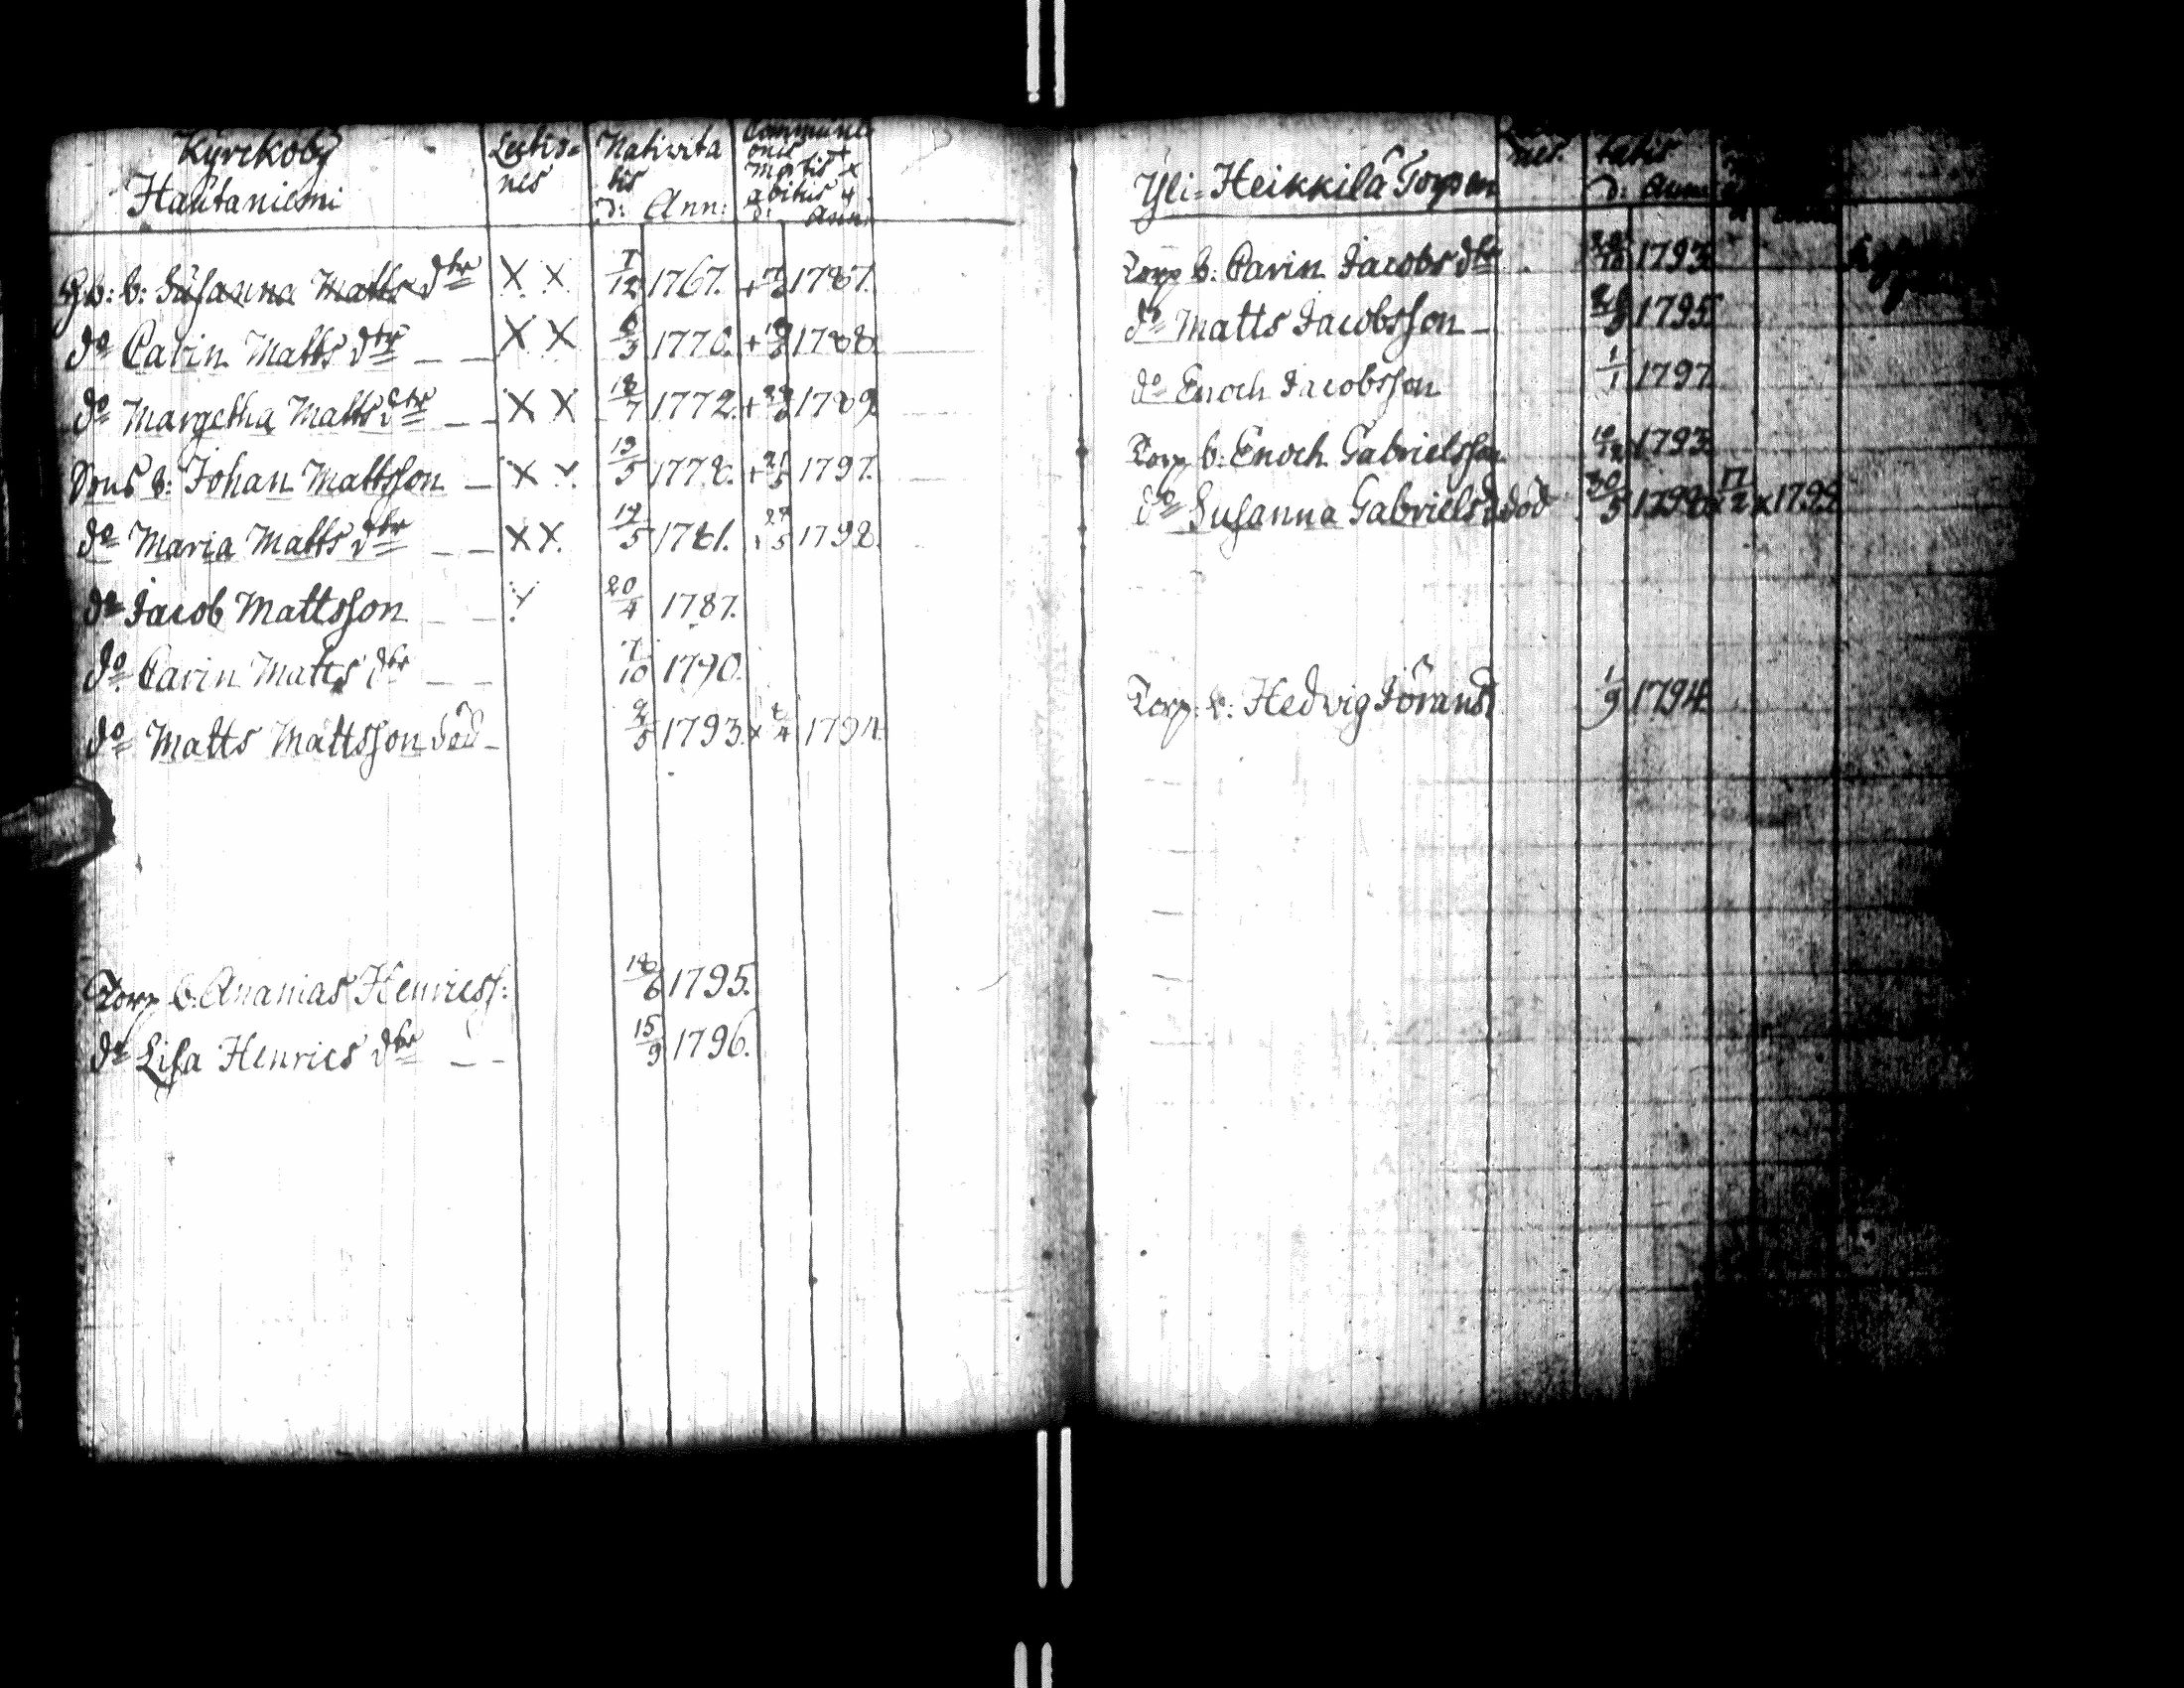 Kyrckoby
Hautaniemi
Lectio=
nes
Nativita
tis
d: Ann:
Communi
onis +
Mortis x
abitus
d: Ann:
b: Susanna Matts dtr X X 7/12 1767. + 1787.
do Carin Matts dtr X X 1770. + 1788.
do Margetha Matts dtr X X 18/7 1772. + 1789
Sons b: Johan Mattsson X 13/5 1778. + 1797.
do Maria Matts dtr X X. 19/5 1781. 1798.
do Jacob Mattsson 20/4 1787.
do Carin Matts dtr 7/10 1790.
do Matts Mattsson död 1793. x 1794.
Torp b. Ananias Henricss: 18/6 1795.
do Lisa Henrics dtr 15/9 1796.
Yli=Heikkilä Torpen
nes. tatis
d: Ann:
Torp b: Carin Jacobs dtr 1793.
do Matts Jacobsson 1795
do Enoch Jacobsson 1/1 1797
Torp b: Enoch Gabrielsson 1793
do Susanna Gabriels d död 30/5 1798 17/2 x 1799
Torp: b: Hedwig Jörans 1/9 1794